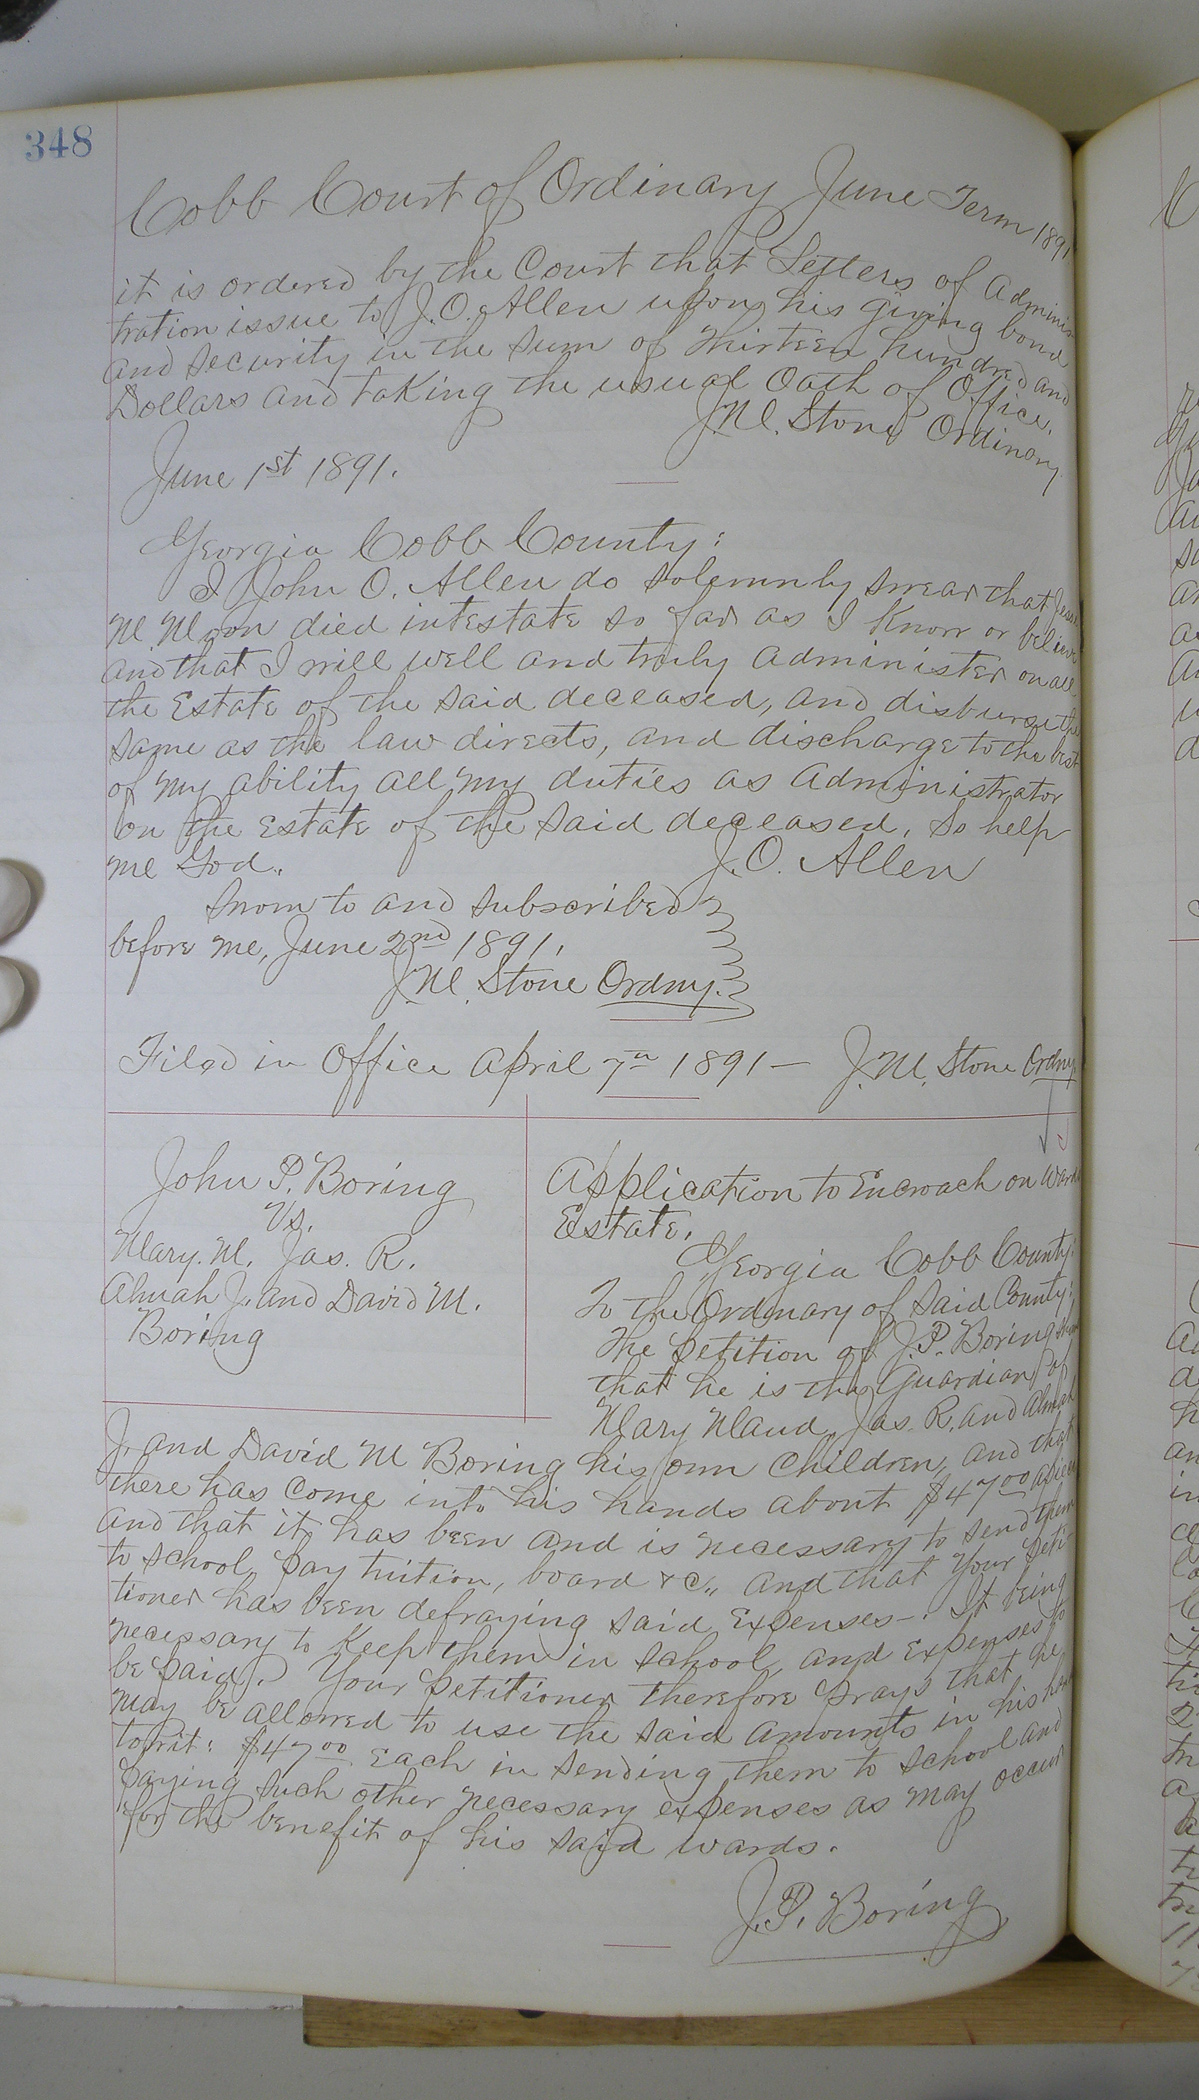 348
Cobb Court of Ordinary June Term 1891
it is ordered by the Court that Letters of Adminis
tration issue to J. O. Allen upon his giving bond
and security in the sum of Thirteen hundred and
Dollars and taking the usual Oath of Office.
J. M. Stone Ordinary
June 1st 1891.
Georgia Cobb County:
I John O. Allen do solemnly swear that
M. died intestate so far as I know or believe
and that I will well and truly administer on all
the Estate of the said deceased, and disburse the
same as the law directs, and discharge to the best
of my ability all my duties as Administrator
on the Estate of the said deceased. So help
me God. J. O. Allen
Sworn to and subscribed
before me, June 2nd 1891.
J. M. Stone Ordny.
Filed in Office April 7th 1891 — J. M. Stone Ordny
John P. Boring
Vs.
Mary. M. Jas. R.
Almah J. and David M.
Boring
Application to Encroach on Wards
Estate.
Georgia Cobb County:
To the Ordinary of Said County:
The Petition of J. P. Boring
that he is the Guardian of
Mary Maud, Jas. R. and Almah
J. and David M Boring his own Children, and that
there has come into his hands about $47.00 apiece
and that it has been and is necessary to send them
to school, pay tuition, board &c., and that Your Peti
tioner has been defraying said Expenses—. It being
necessary to keep them in school, and expenses to
be paid. Your Petitioner therefore prays that he
may be allowed to use the said amounts in his hands
towit: $47.00 each in sending them to school and
paying such other necessary expenses as may occur
for the benefit of his said wards.
J. P. Boring